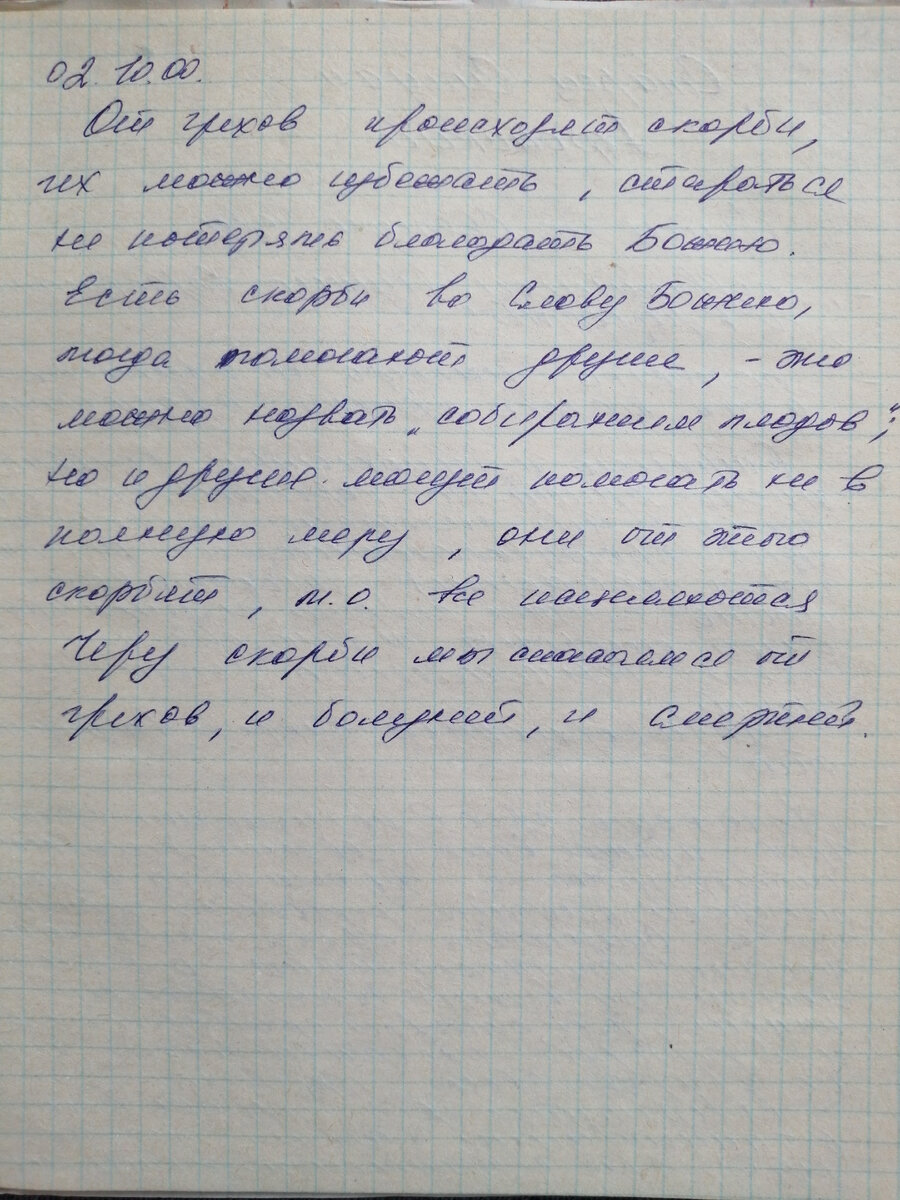 02.10.00.
От грехов происходят скорби,
их можно избежать, стараться
не потерять благодать Божию.
Есть скорби во Славу Божию,
тогда помогают другие, - это
можно назвать „собиранием плодов";
но и другие могут помогать не в
полную меру, они от этого
скорбят, т.о. все
Через скорби мы спасаемся от
грехов, и болезней, и смертей.